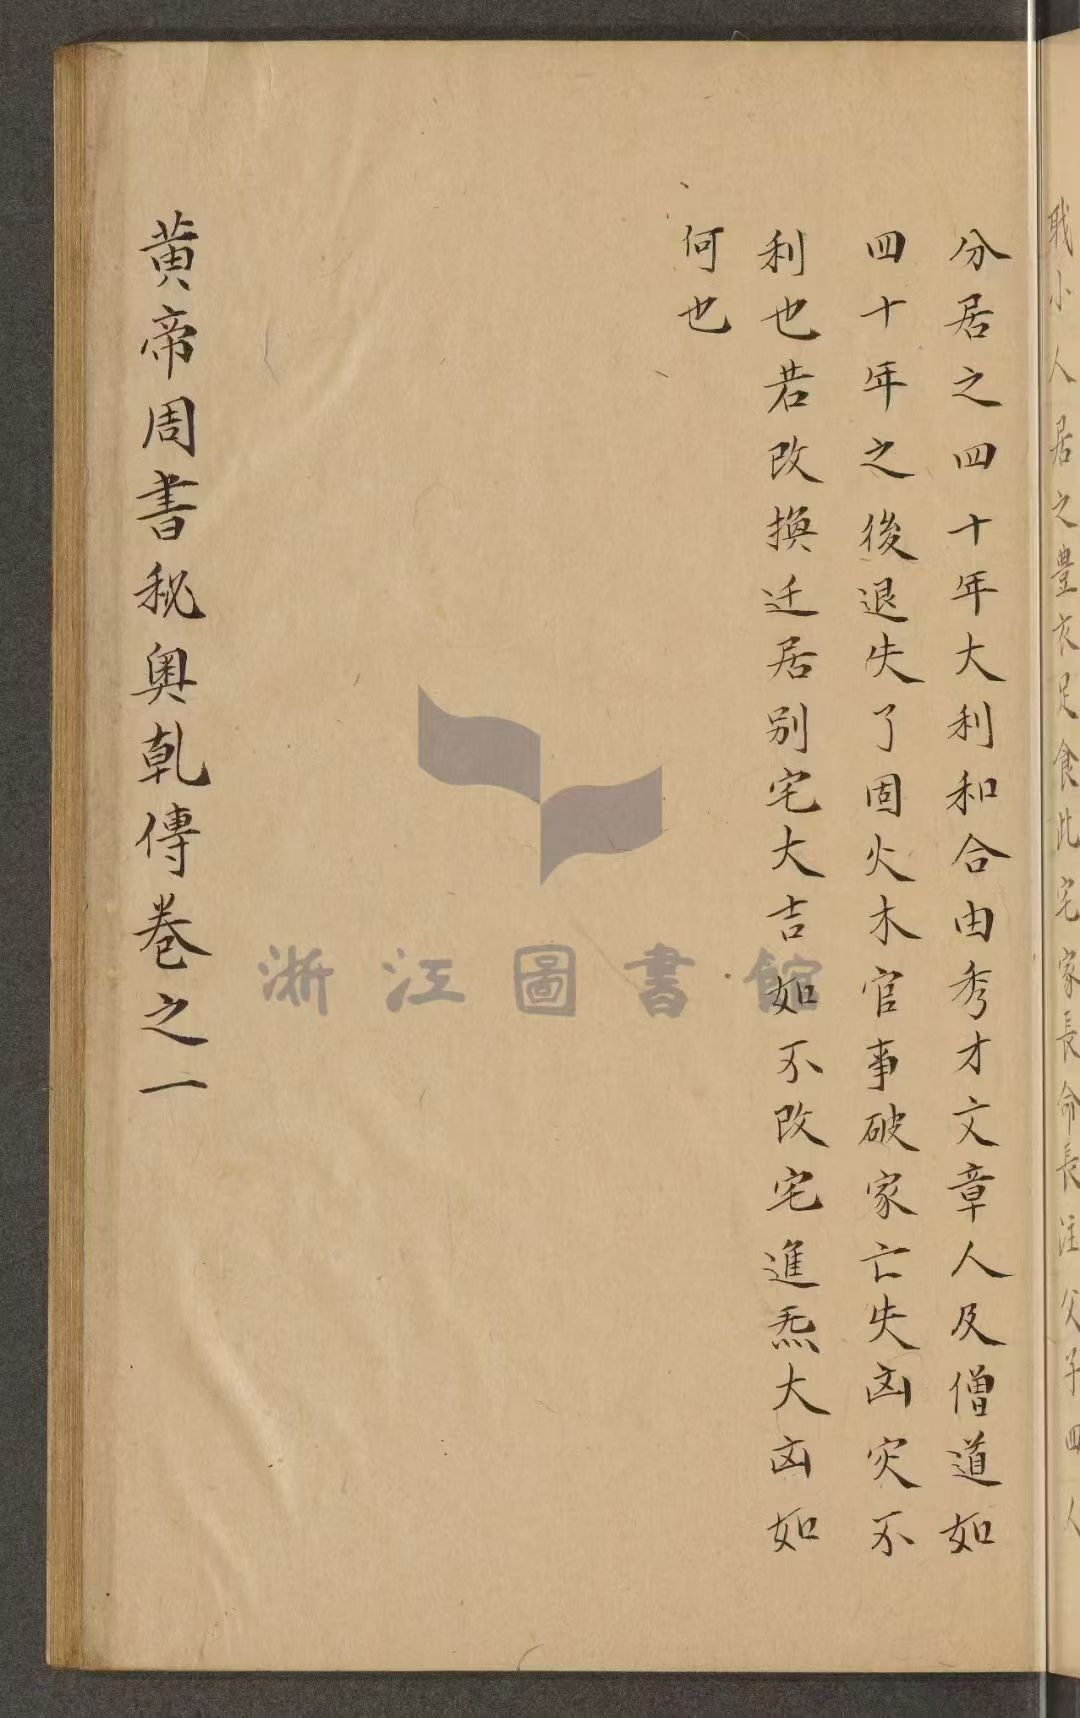 戢小人居之豊衣足食此宅家長命長注父子四人
分居之四十年大利和合由秀才文章人及僧道如
四十年之後退失了固火木官事破家亡失凶灾不
利也若改換迁居别宅大吉如不改宅進炁大凶如
何也
黄帝周書秘奥乹傳卷之一
浙江圖書館